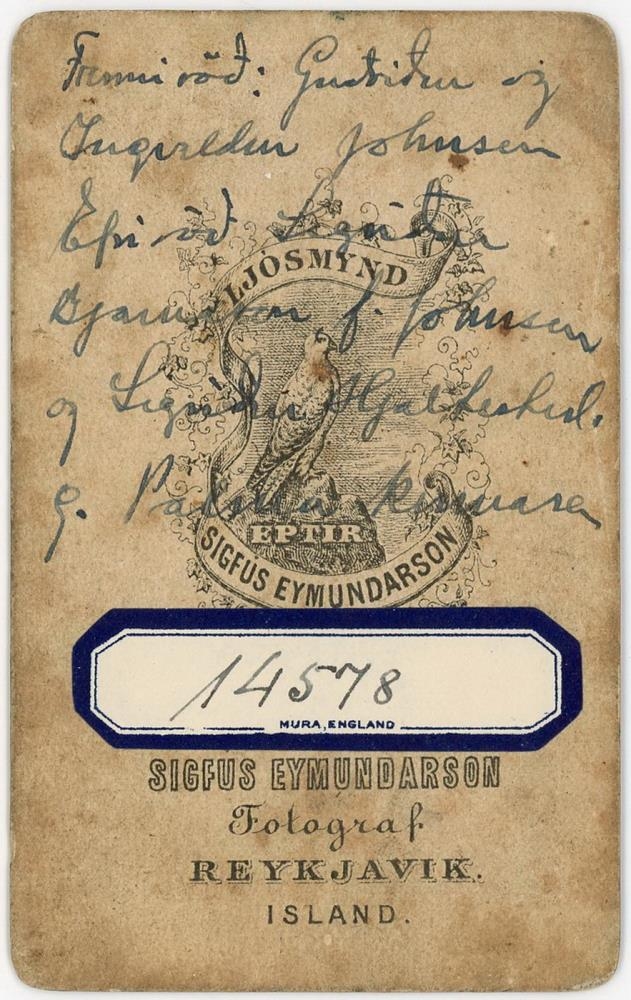 Fremri röð: Guðríður og
Ingveldur Johnsen
Efri röð Sigríður
Bjarnason f. Johnsen
og Sigríður Hjaltested.
g. Pálma kennara
LJÓSMYND
EPTIR
SIGFUS EYMUNDARSON
14578
MURA, ENGLAND
SIGFUS EYMUNDARSON
Fotograf
REYKJAVIK.
ISLAND.